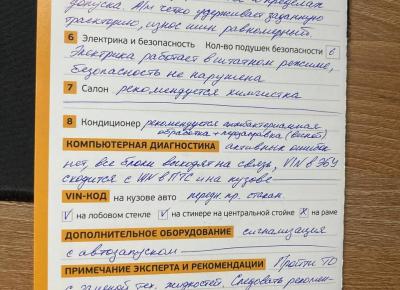 допуска. А/м четко удерживает заданную
траекторию, износ шин равномерный.
6 Электрика и безопасность Кол-во подушек безопасности 6
Электрика работает в штатном режиме,
безопасность не нарушена
7 Салон рекомендуется химчистка
8 Кондиционер рекомендуется антибактериальная
обработка + дозаправка
КОМПЬЮТЕРНАЯ ДИАГНОСТИКА активных ошибок
нет, все блоки выходят на связь, VIN в ЭБУ
сходится с VIN в ПТС и на кузове
VIN-КОД на кузове авто передн. пр. стакан.
V на лобовом стекле V на стикере на центральной стойке X на раме
ДОПОЛНИТЕЛЬНОЕ ОБОРУДОВАНИЕ сигнализация
с автозапуском
ПРИМЕЧАНИЕ ЭКСПЕРТА И РЕКОМЕНДАЦИИ Пройти ТО
с заменой тех. жидкостей. Следовать рекомен-